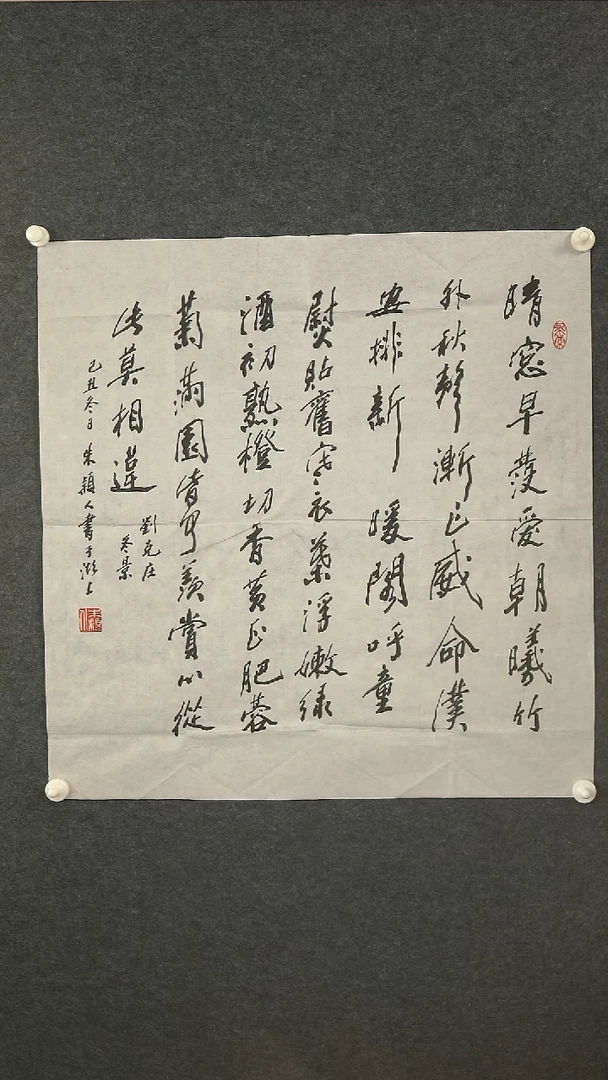 晴窓早覺愛朝曦竹
外秋聲漸正威命僕
安排新暖閣呼童
熨貼舊寒衣葉浮嫩綠
酒初熟橙切香黃正肥蓉
菊滿園皆可羨賞心從
此莫相違
劉克庄
冬景
己丑冬日朱穎人書于湖上